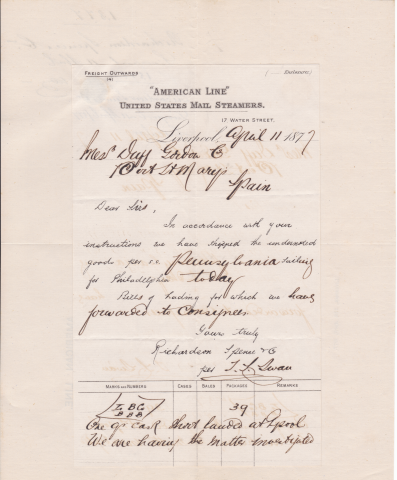 FREIGHT OUTWARDS
Enclosure.)
"AMERICAN LINE"
UNITED STATES MAIL STEAMERS.
17, WATER STREET,
Liverpool, April 11 1877
Mess Duff Gordon & C
Port St Marys
Spain
Dear Sirs,
In accordance with your
instructions we have shipped the undernoted
goods per s.s. Pennsylvania sailing
for Philadelphia today
Bills of Lading for which we have
forwarded to Consignees
Yours truly
Richardson Spence & C
per
MARKS AND NUMBERS CASES BALES PACKAGES REMARKS
BBB 39
One qr cask short landed at Lpool
We are having the matter investigated